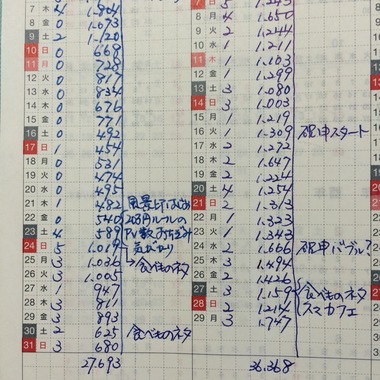 7 木 4 1.804
8 金 0 1.073
9 土 2 1.120
10 日 0 669
11 月 0 728
12 火 0 817
13 水 0 834
14 木 0 676
15 金 0 771
16 土 0 492
17 日 1 454
18 月 0 531
19 火 0 474
20 水 0 495
21 木 1 482
22 金 0 540
23 土 4 589
24 日 5 1.019
25 月 3 1.036 食べものネタ
26 火 3 1.005
27 水 1 947
28 木 3 811
29 金 3 893
30 土 2 625 食べものネタ
31 日 3 680
27.693
7 日 5 1.243
8 月 4 1.650
9 火 2 1.244
10 水 1 1.211
11 木 1 1.103
12 金 1 1.299
13 土 3 1.080
14 日 3 1.003
15 月 1 1.219
16 火 1 1.309 確申スタート
17 水 1 1.272
18 木 2 1.647
19 金 2 1.224
20 土 4 1.254
21 日 2 1.313
22 月 1 1.323
23 火 1 1.343
24 水 2 1.666 確申バブル?
25 木 3 1.494
26 金 2 1.426
27 土 3 1.159 食べものネタ
28 日 2 1.214 スマカフェ
29 月 3 1.747
36.368